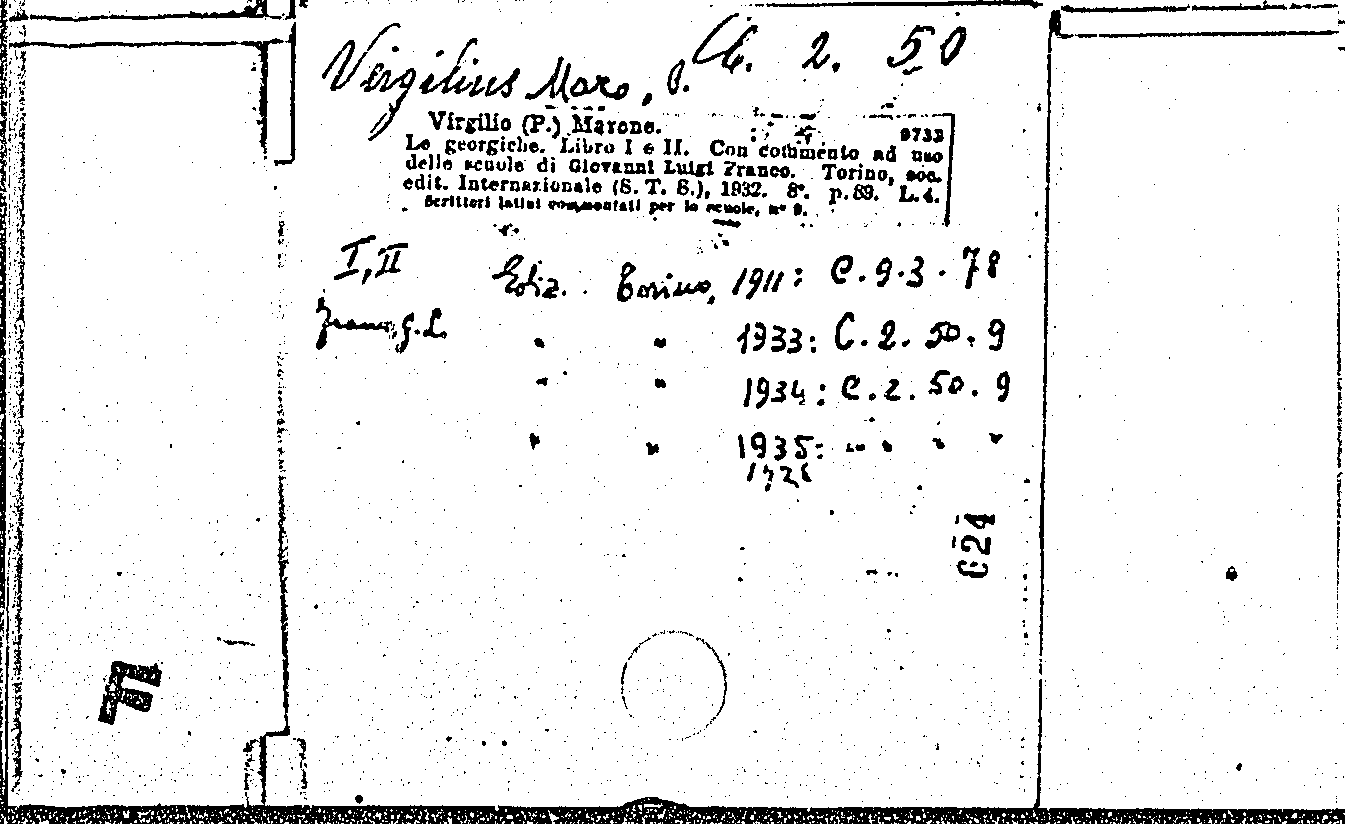 C. 2. 50
Vergilius Maro, P.
Virgilio (P.) Marone. 9733
Le georgiche. Libro I e II. Con commento ad uso
delle scuole di Giovanni Luigi Franco. Torino, soc.
edit. Internazionale (S. T. S.), 1932. 8°. p. 69. L. 4.
Scrittori latini commentati per le scuole, n° 9.
I, II
Ediz. Torino, 1911: C. 9. 3. 78
Franco, G. L.
" " 1933: C. 2. 50. 9
" " 1934: C. 2. 50. 9
" " 1935: " " " "
624
F